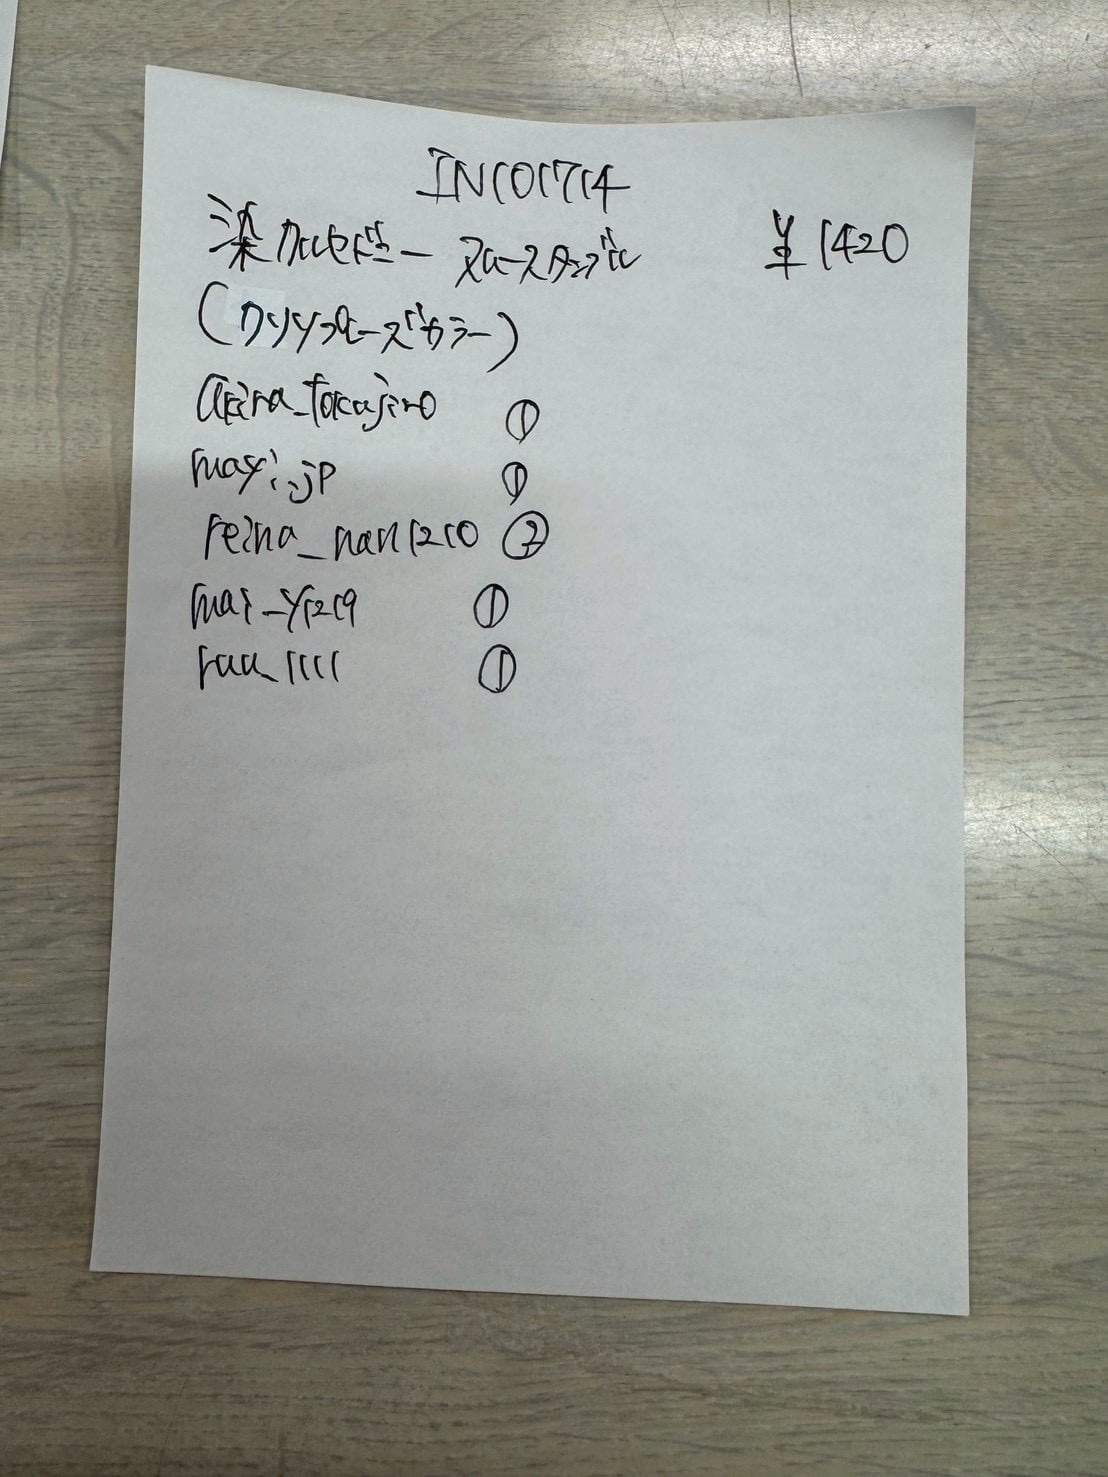 INC01714
染 カルセドニー ヌーススタッズ ¥1420
(クリソプレーズカラー)
akira_tokujiro ①
mayi.jp ①
reina_nan1210 ②
mai_y1219 ①
ruu_1111 ①